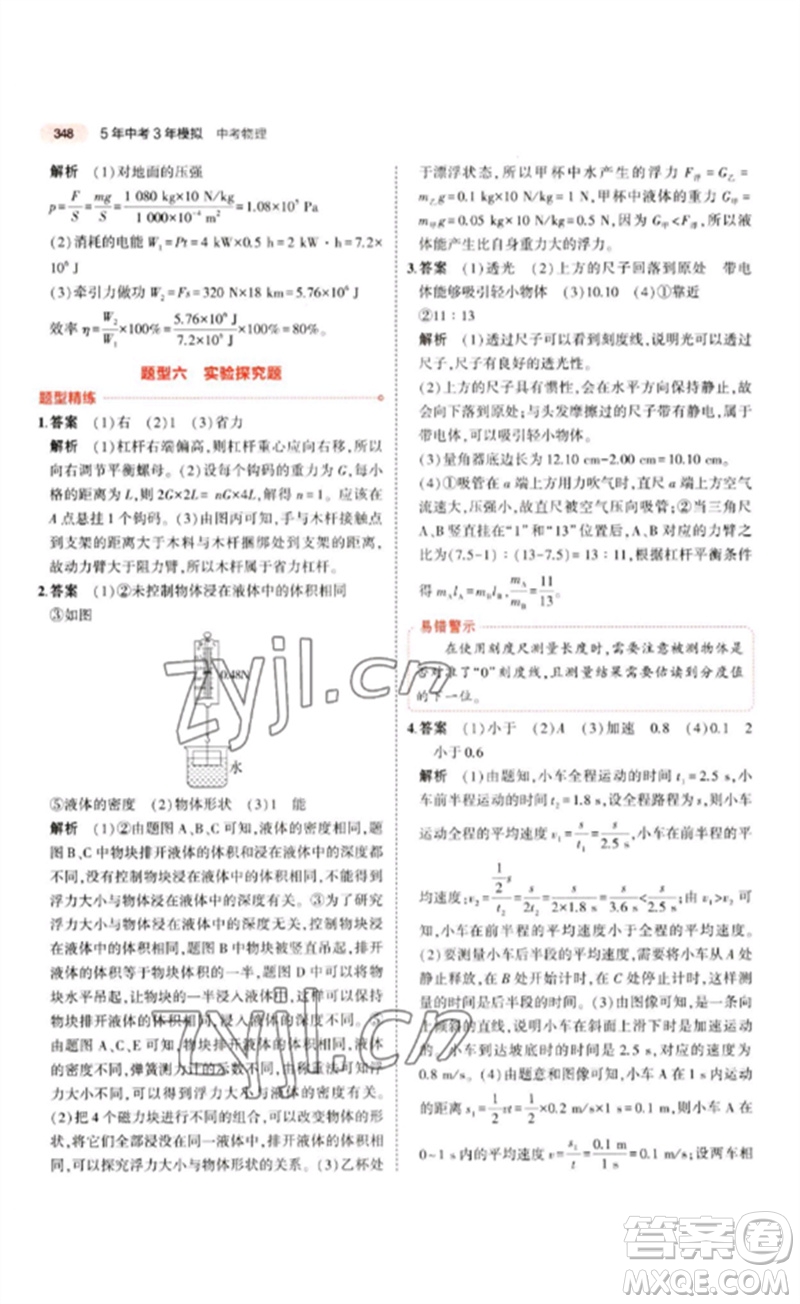 348 5年中考3年模拟 中考物理
解析 (1)对地面的压强
p=F/S=mg/S=1 080 kg×10 N/kg/1 000×10⁻⁴ m²=1.08×10⁵ Pa
(2)消耗的电能 W₁=Pt=4 kW×0.5 h=2 kW·h=7.2×
10⁶ J
(3)牵引力做功 W₂=Fs=320 N×18 km=5.76×10⁶ J
效率 η=W₂/W₁×100%=5.76×10⁶ J/7.2×10⁶ J×100%=80%。
题型六 实验探究题
题型精练
1.答案 (1)右 (2)1 (3)省力
解析 (1)杠杆右端偏高,则杠杆重心应向右移,所以
向右调节平衡螺母。(2)设每个钩码的重力为 G,每小
格的距离为 L,则有 2G×2L= nG×4L,解得 n=1。所以在
A 点悬挂 1 个钩码。(3)由图丙可知,手与木杆接触点
到支架的距离大于木料与木杆捆绑处到支架的距离,
故动力臂大于阻力臂,所以此杠杆为省力杠杆。
2.答案 (1)②未控制物体浸在液体中的体积相同
③如图
0.48N
水
⑤液体的密度 (2)物体形状 (3)1 能
解析 (1)②由题图 A、B、C 可知,液体的密度相同,题
图 B、C 中物块排开液体的体积和浸在液体中的深度都
不同,没有控制物块排开液体的体积相同,不能得出
浮力大小与物体浸在液体中的深度有关。③为了研究
浮力大小与物体浸在液体中的深度无关,应控制物块浸
在液体中的体积相同,题图 B 中物块被竖直吊起,排开
液体的体积等于物块体积的一半,题图 D 中应将该物
块水平吊起,让物块的一半浸入液体中,这样可以保持
物块排开液体的体积相同,浸入液体的深度不同。⑤
由题图 A、C、E 可知,物块排开液体的体积相同,液体
的密度不同,弹簧测力计的示数不同,由称重法可知,
物块所受浮力不同,故浮力的大小与液体的密度有关。
(2)把 4 个磁力块进行不同的组合,可以改变物体的形
状,将它们全部浸没在同一液体中,排开液体的体积相
同,可以探究浮力大小与物体形状的关系。(3)乙杯处
于漂浮状态,所以甲杯中水产生的浮力 F浮=G乙=
m乙g=0.1 kg×10 N/kg=1 N,甲杯中液体的重力 G甲=
m甲g=0.05 kg×10 N/kg=0.5 N,因为 G甲<F浮,所以液
体能产生比自身重力大的浮力。
3.答案 (1)透光 (2)上方的尺子回落到原处 带电
体能够吸引轻小物体 (3)10.10 (4)①靠近
②11∶13
解析 (1)透过尺子可以看到刻度线,说明光可以透过
尺子,尺子有良好的透光性。
(2)上方的尺子具有惯性,会在竖直方向保持静止,故
会回落在原处;与头发摩擦过的尺子带有静电,属于
带电体,可以吸引轻小物体。
(3)量角器底边长为 12.10 cm-2.00 cm=10.10 cm。
(4)①吸管在 a 端上方用力吹气时,a 端吸管上方空气
流速大,压强小,故尺受空气压强向吸管;②当三角尺
A、B 竖直挂在“1”和“13”位置后,A、B 对应的力臂之
比为(7.5-1)∶(13-7.5)=13∶11,根据杠杆平衡条件
得 mAlA=mBlB,mA/mB=11/13。
易错警示
在使用刻度尺测量长度时,需要注意被测物体是
否对准了“0”刻度线,且测量结果需要估读到分度值
的下一位。
4.答案 (1)小于 (2)A (3)加速 0.8 (4)0.1 2
小于0.6
解析 (1)由题知,小车全程运动的时间 t₁=2.5 s,小
车前半程运动的时间 t₂=1.8 s,设全程路程为 s,小车
运动全程的平均速度 v₁=s/t₁=s/2.5 s,小车在前半程的平
均速度:v₂=½s/t₂=s/2t₂=s/2×1.8 s=s/3.6 s<s/2.5 s;由 v₁>v₂可
知,小车在前半程的平均速度小于全程的平均速度。
(2)要测量小车后半段的平均速度,需将小车从 A 处
静止释放,在 B 处开始计时,在 C 处停止计时,这样测
量的时间为后半段的时间。(3)由图像可知,是一条向
上倾斜的直线,说明小车在斜面上滑下时是加速运动
的。小车到达坡底时的时间是 2.5 s,对应的速度为
0.8 m/s。(4)由题意和图像可得,小车在 0~1 s 内通
过的距离为 s₁=½vt=½×0.2 m/s×1 s=0.1 m,小车在
0~1 s 内的平均速度为 v=s₁/t=0.1 m/1 s=0.1 m/s;设两车相
zyjl.cn
zyjl.cn
答案圈
MXQE.COM